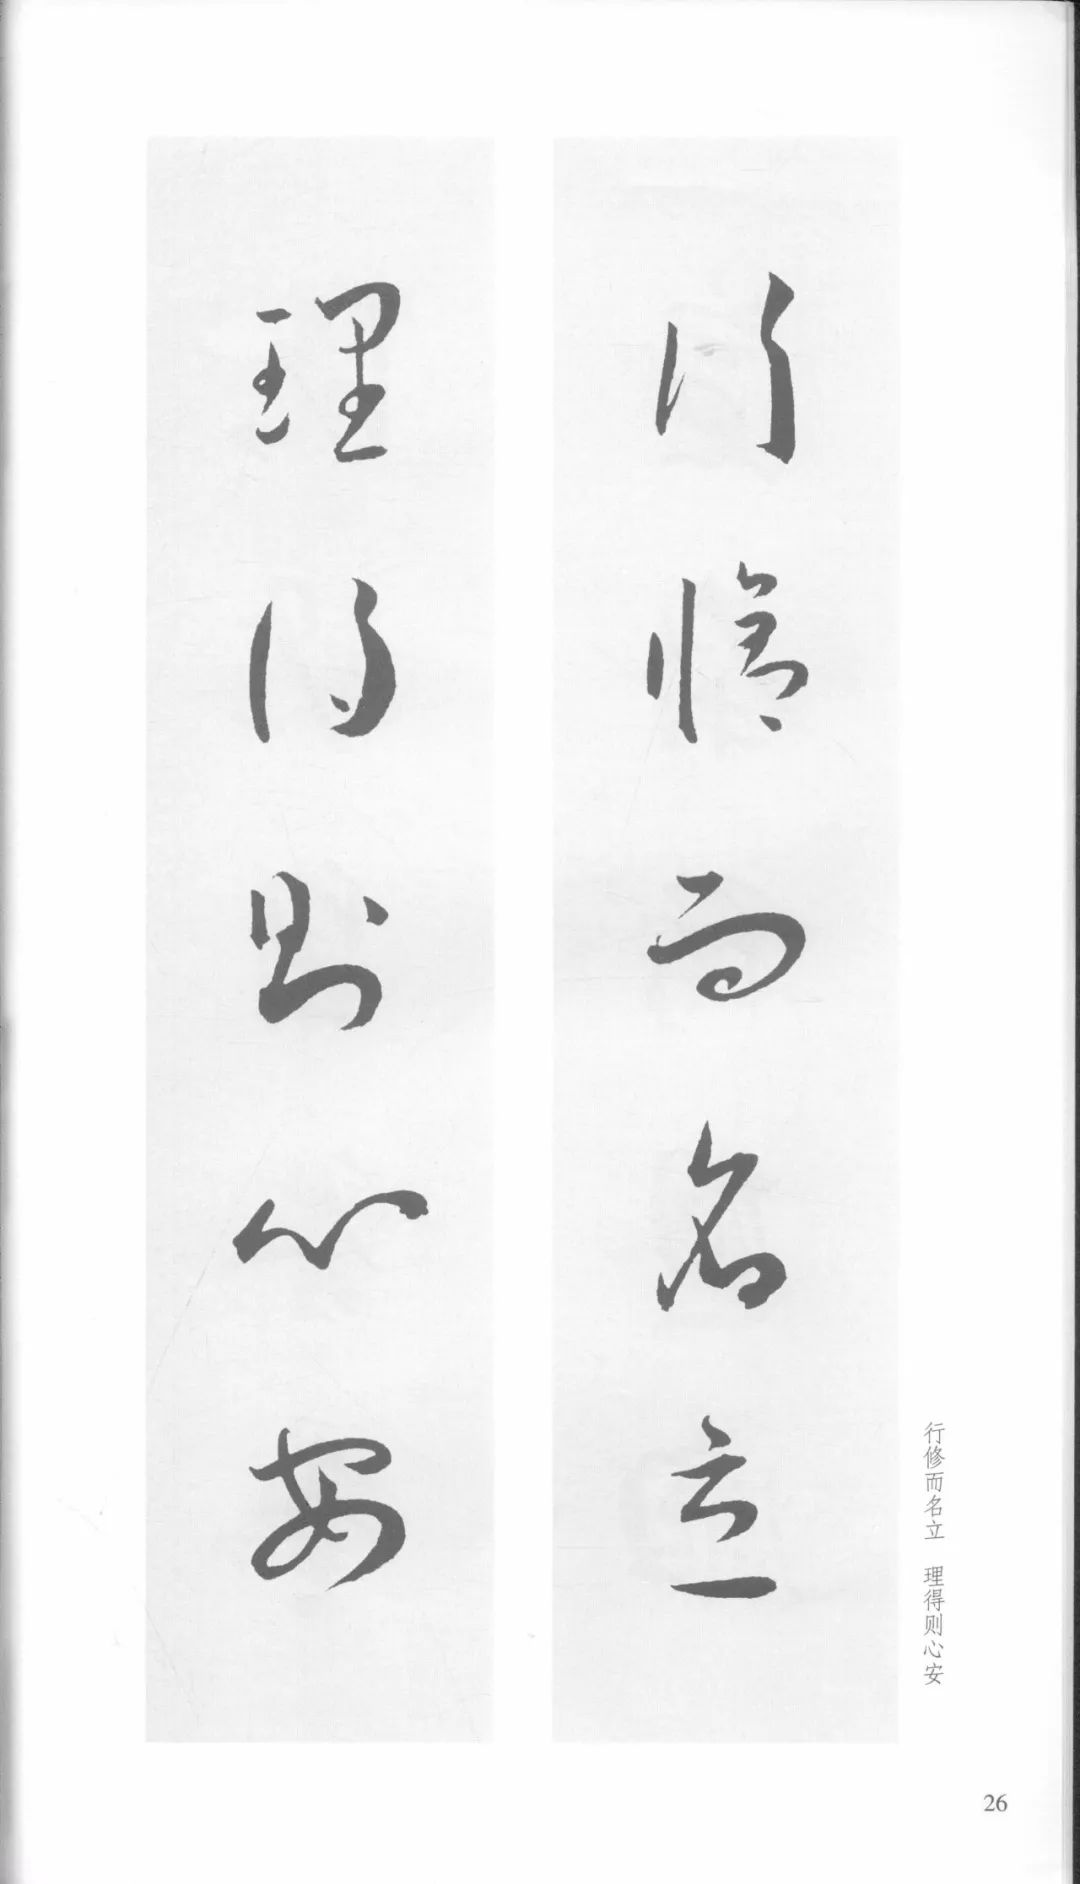 行修而名立
理得则心安
行修而名立 理得则心安
26